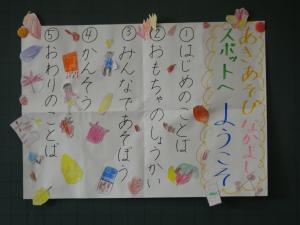 あきあそび なかよし
スポットへ ようこそ
①はじめのことば
②おもちゃのしょうかい
③みんなであそぼう
④かんそう
⑤おわりのことば